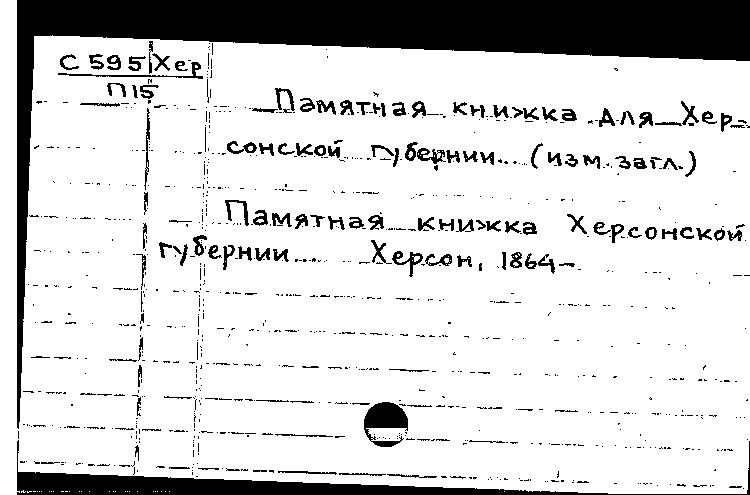 С 595 Хер
П15
Памятная книжка для Хер=
сонской губернии... (изм. загл.)
Памятная книжка Херсонской
губернии... Херсон, 1864-